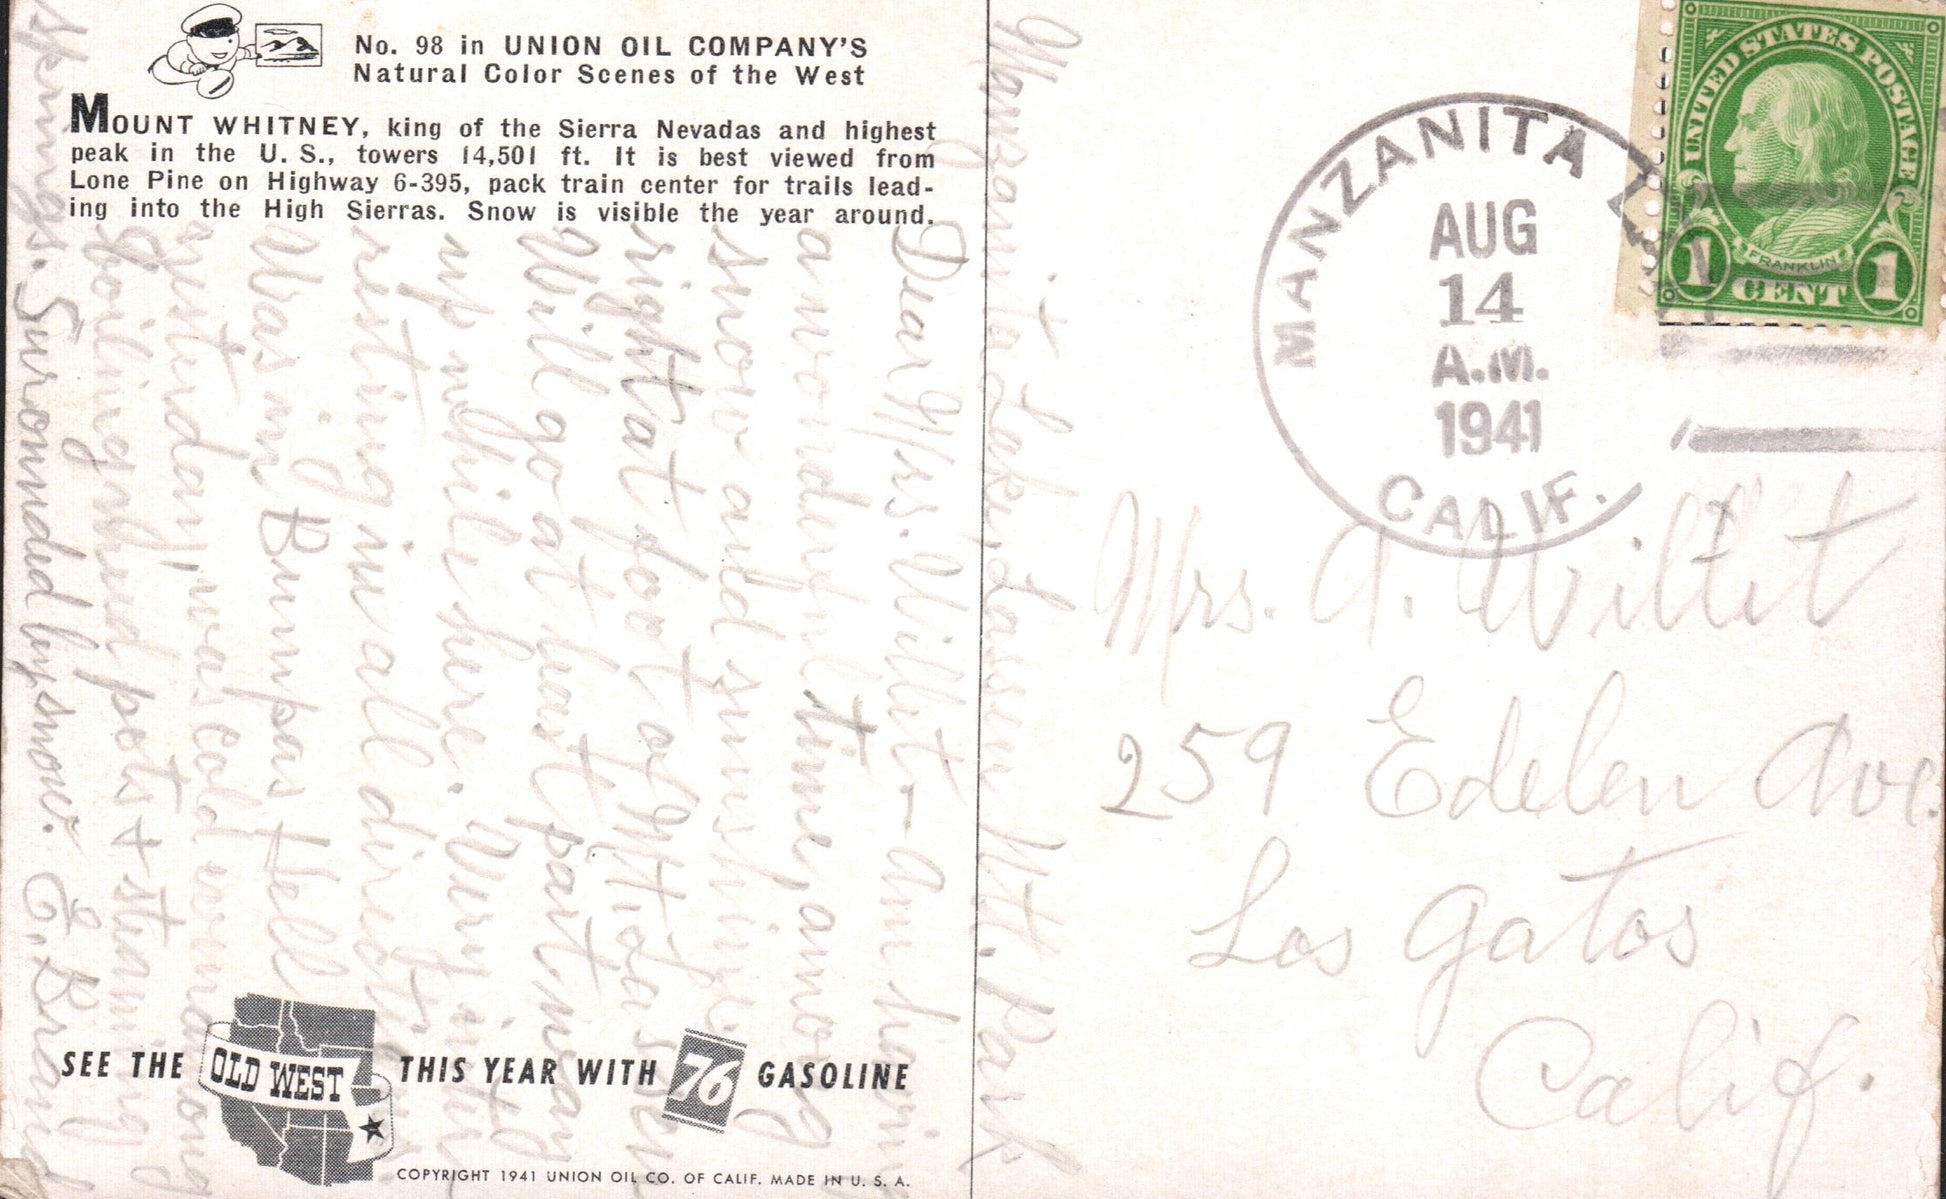 No. 98 in UNION OIL COMPANY'S
Natural Color Scenes of the West
MOUNT WHITNEY, king of the Sierra Nevadas and highest
peak in the U. S., towers 14,501 ft. It is best viewed from
Lone Pine on Highway 6-395, pack train center for trails lead-
ing into the High Sierras. Snow is visible the year around.
Manzanita Lake, Lassen Nt. Park
Dear Mrs. Willit - Am having
a wonderful time, among
snow and sunshine
right at foot of Mt Lassen
Will go at last part may
up while here. Very
resting in all
Was in Bumpas Hell
yesterday, was cold wind among
boiling mud pots + steaming
springs. Surounded by snow. E. Brand
SEE THE OLD WEST THIS YEAR WITH 76 GASOLINE
COPYRIGHT 1941 UNION OIL CO. OF CALIF. MADE IN U. S. A.
MANZANITA
AUG
14
A.M.
1941
CALIF.
UNITED STATES POSTAGE
FRANKLIN
1 CENT 1
Mrs. A. Willit
259 Edelen Ave.
Los Gatos
Calif.